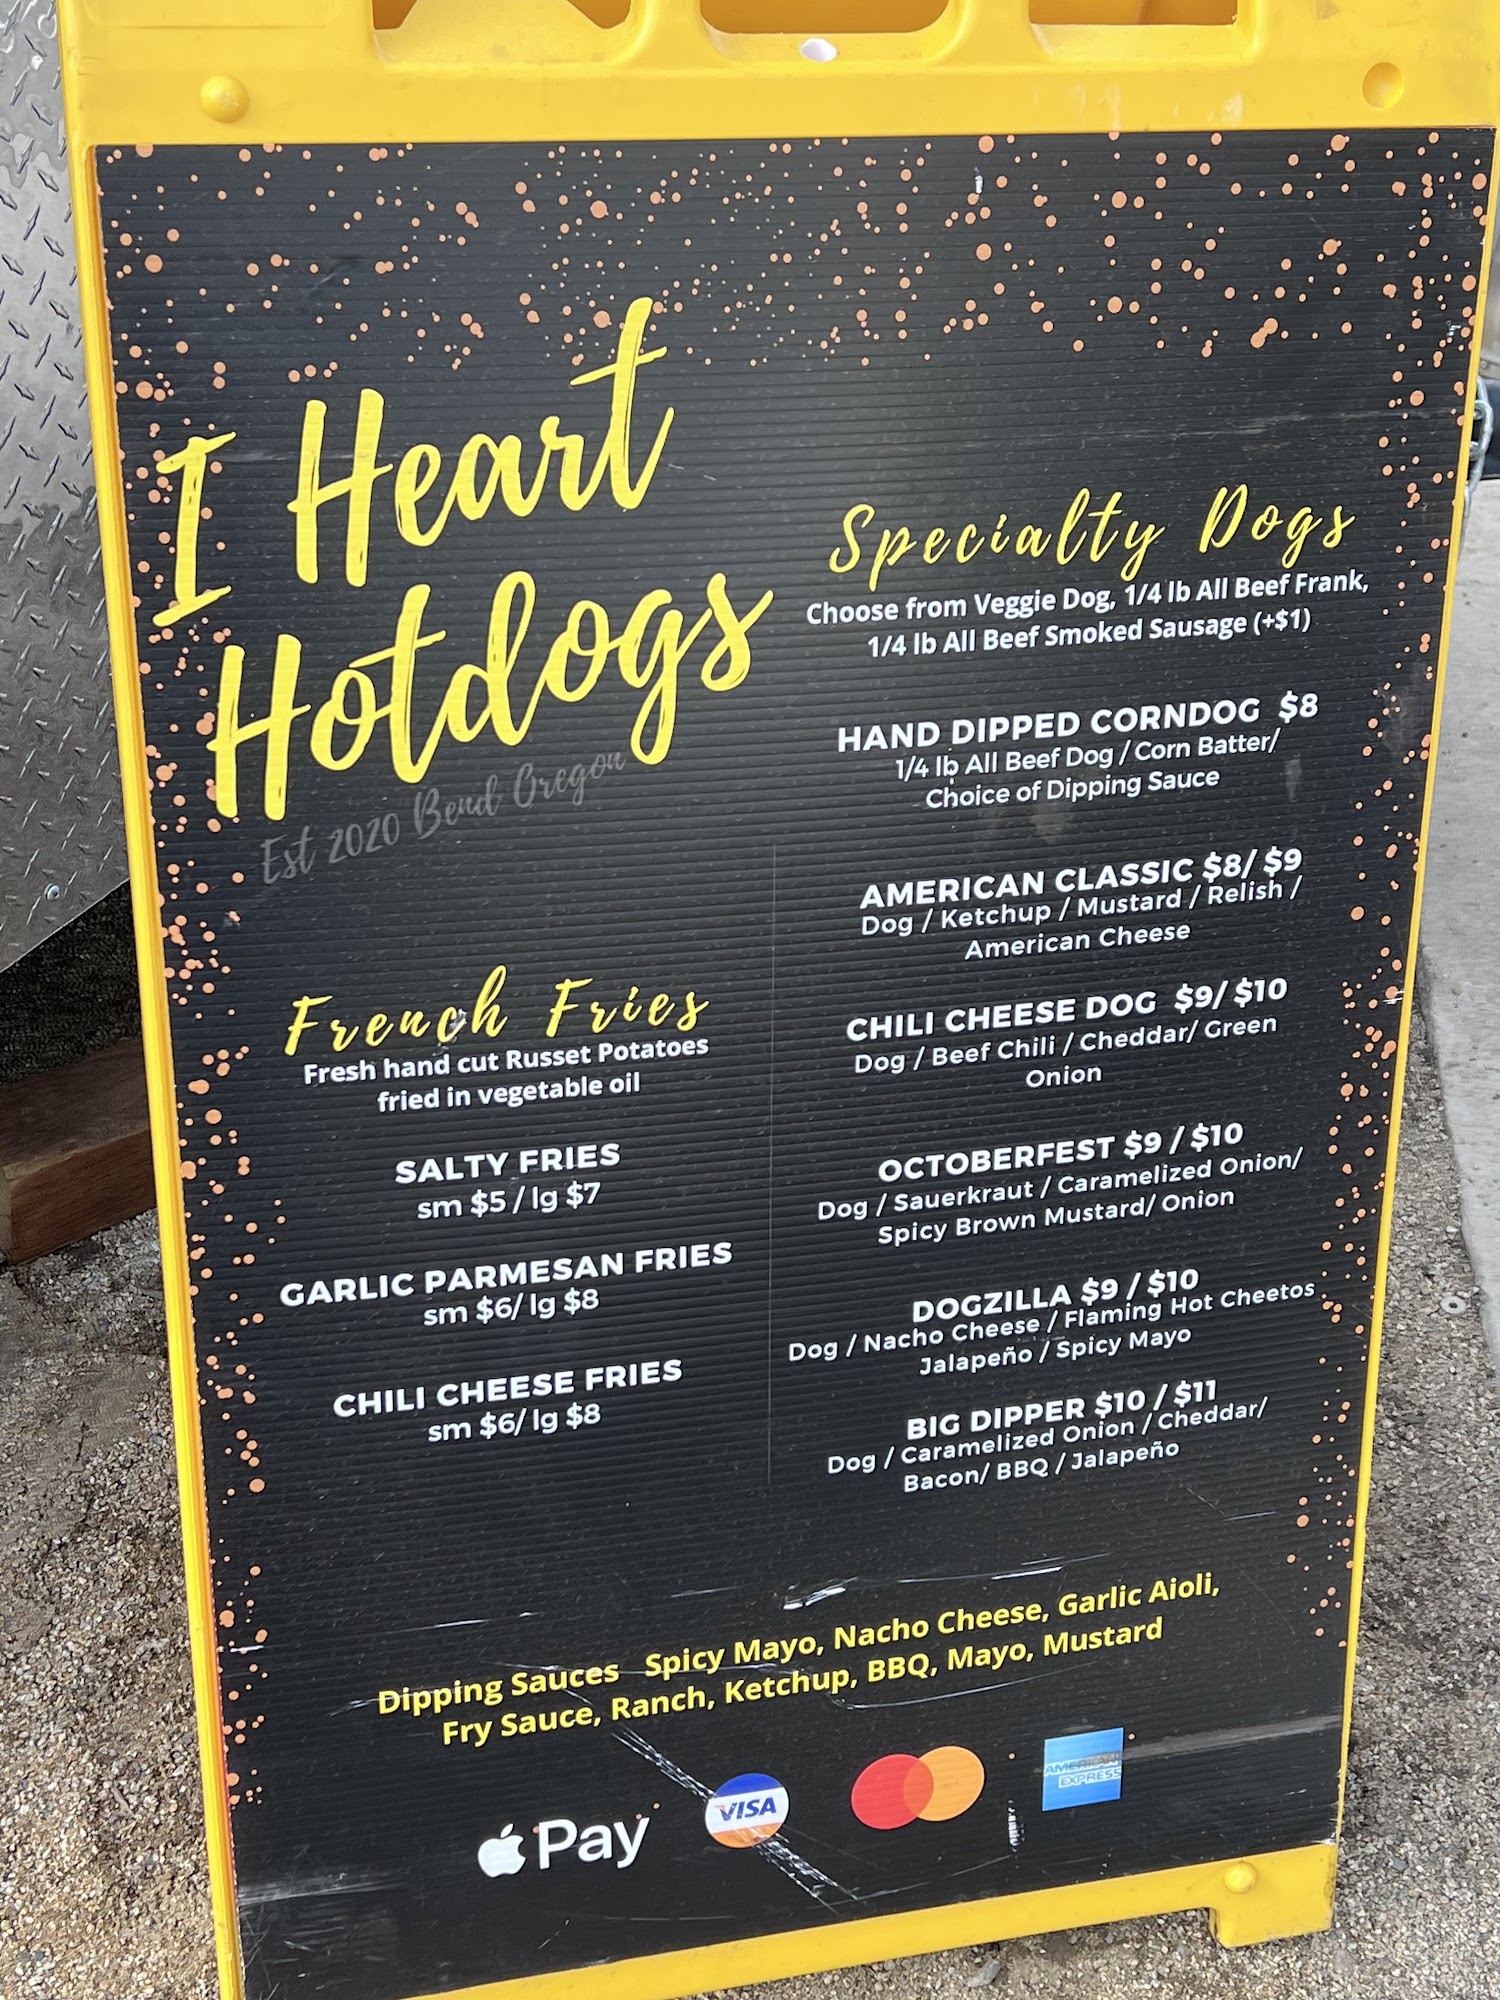 I Heart
Hotdogs
Est 2020 Bend Oregon
French Fries
Fresh hand cut Russet Potatoes
fried in vegetable oil
SALTY FRIES
sm $5 / lg $7
GARLIC PARMESAN FRIES
sm $6/ lg $8
CHILI CHEESE FRIES
sm $6/ lg $8
Specialty Dogs
Choose from Veggie Dog, 1/4 lb All Beef Frank,
1/4 lb All Beef Smoked Sausage (+$1)
HAND DIPPED CORNDOG $8
1/4 lb All Beef Dog / Corn Batter/
Choice of Dipping Sauce
AMERICAN CLASSIC $8/ $9
Dog / Ketchup / Mustard / Relish /
American Cheese
CHILI CHEESE DOG $9/ $10
Dog / Beef Chili / Cheddar/ Green
Onion
OCTOBERFEST $9 / $10
Dog / Sauerkraut / Caramelized Onion/
Spicy Brown Mustard/ Onion
DOGZILLA $9 / $10
Dog / Nacho Cheese / Flaming Hot Cheetos
Jalapeño / Spicy Mayo
BIG DIPPER $10 / $11
Dog / Caramelized Onion / Cheddar/
Bacon/ BBQ / Jalapeño
Dipping Sauces Spicy Mayo, Nacho Cheese, Garlic Aioli,
Fry Sauce, Ranch, Ketchup, BBQ, Mayo, Mustard
Pay
VISA
AMERICAN
EXPRESS